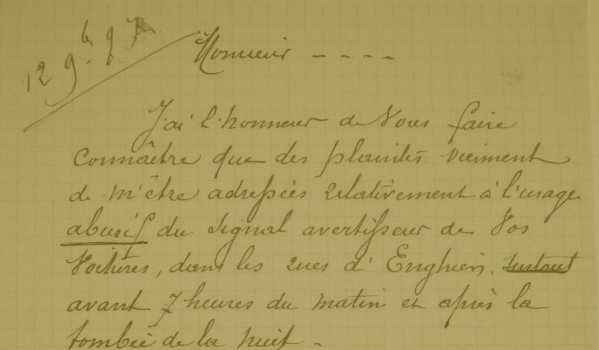 12 9b 97
Monsieur ----
J'ai l'honneur de Vous faire
connaître que des plaintes viennent
de m'être adressées relativement à l'usage
abusif du signal avertisseur de Vos
Voitures, dans les rues d'Enghien, surtout
avant 7 heures du matin et après la
tombée de la nuit -